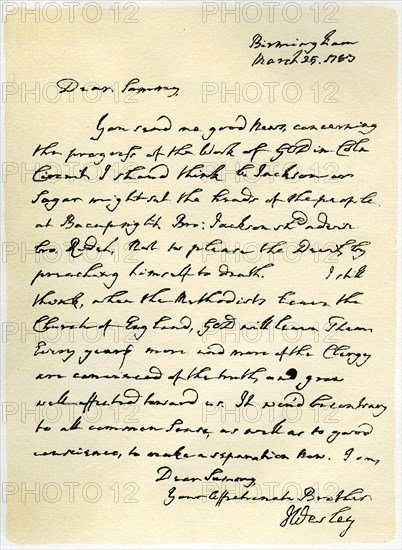 Birmingham
March 25, 1787
Dear Sammy,
You send me good News, concerning
the progress of the Work of GOD in Coln
Circuit. I should think Br Jackson or
Sagar might set the heads of the people
at Bacup right. Bro: Jackson shd advise
bro. Ridel, Not to please the Devil, by
preaching himself to death. I still
think, when the Methodists leave the
Church of England, GOD will leave Them.
Every year more and more of the Clergy
are convinced of the truth, and grow
well-affected toward us. It woud be contrary
to all common Sense, as well as to good
conscience, to make a separation Now. I am,
Dear Sammy
Your Affectionate Brother
JWesley